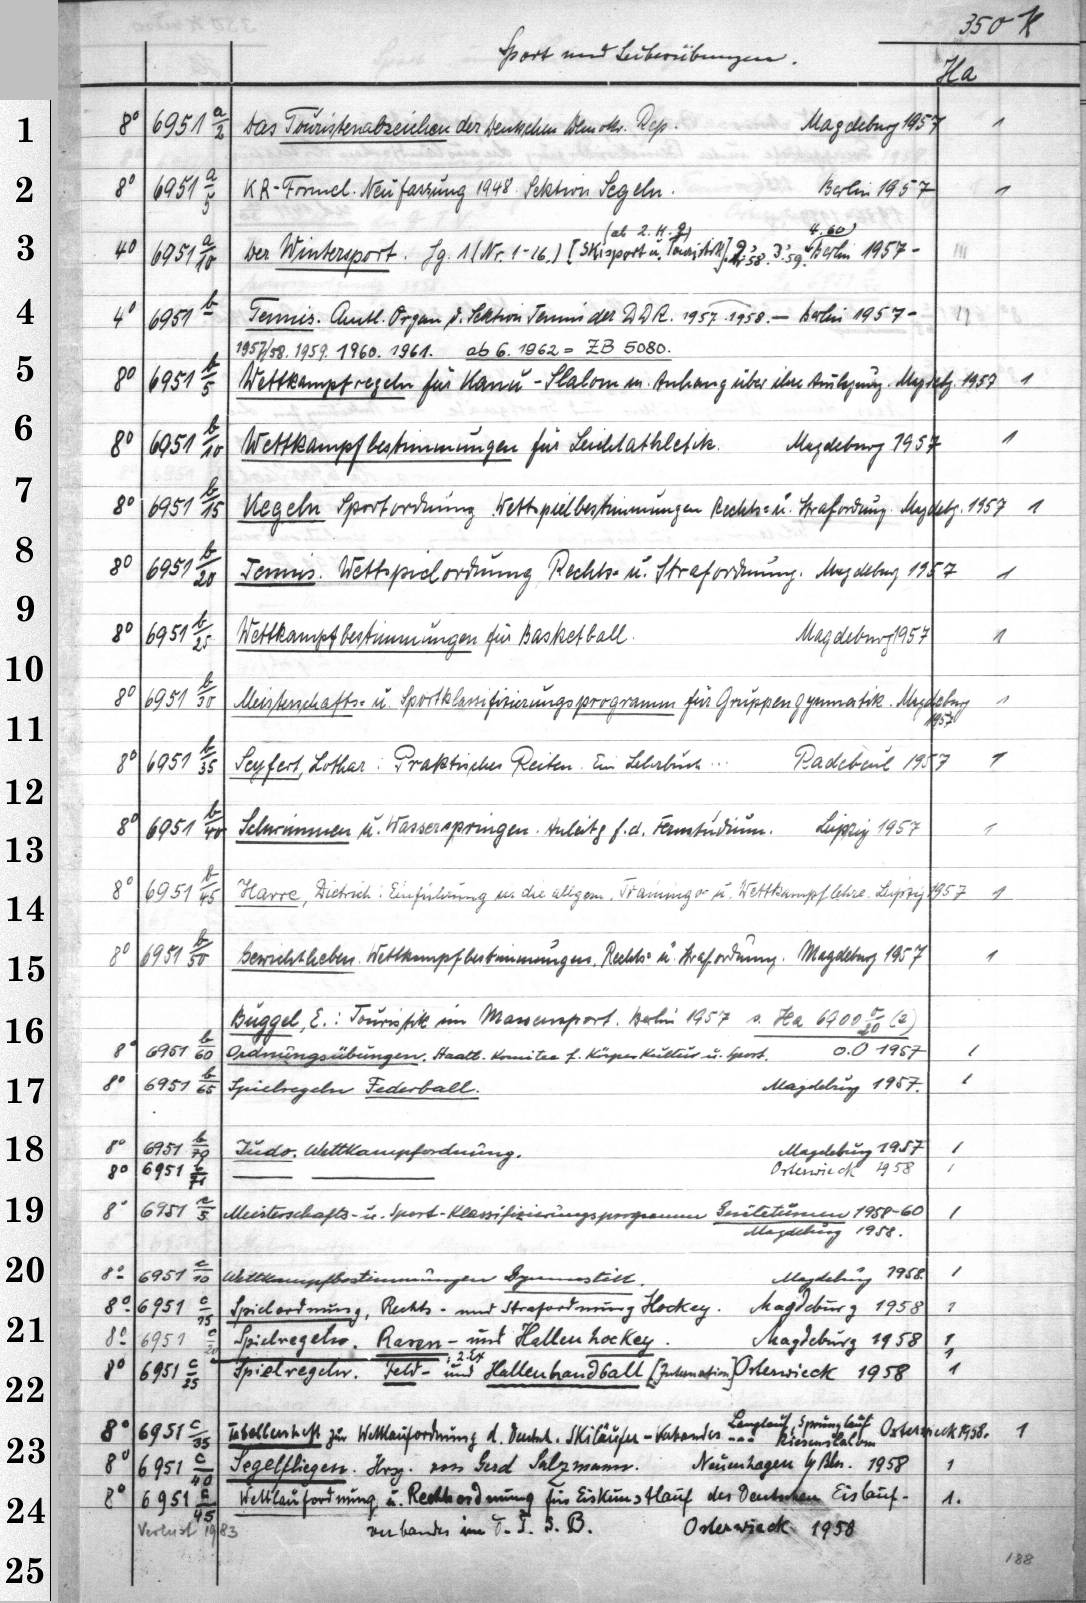 350 K
Sport und Leibesübungen.
Ha
1 8° 6951 a/2 Das Touristenabzeichen der Deutschen Demokr. Rep. Magdeburg 1957 1
2 8° 6951 a/5 KR-Formel. Neufassung 1948. Sektion Segeln. Berlin 1957 1
(ab 2. H. 9) 4, 60)
3 4° 6951 a/10 Der Wintersport. Jg. 1 (Nr. 1-16.) [Skisport u. Touristik] 2, '58. 3, '59. Berlin 1957- III
4 4° 6951 b Tennis. Amtl. Organ d. Sektion Tennis der DDR. 1957. 1958. — Berlin 1957- II
1957/58. 1959. 1960. 1961. ab 6. 1962 = ZB 5080.
5 8° 6951 b/5 Wettkampfregeln für Kanu-Slalom m. Anhang über ihre Auslegung. Magdebg. 1957 1
6 8° 6951 b/10 Wettkampfbestimmungen für Leichtathletik. Magdeburg 1957 1
7 8° 6951 b/15 Kegeln Sportordnung Wettspielbestimmungen Rechts- u. Strafordnung. Magdebg. 1957 1
8 8° 6951 b/20 Tennis. Wettspielordnung Rechts- u. Strafordnung. Magdeburg 1957 1
9 8° 6951 b/25 Wettkampfbestimmungen für Basketball. Magdeburg 1957 1
10 8° 6951 b/30 Meisterschafts- u. Sportklassifizierungsprogramm für Gruppengymnastik. Magdeburg 1
11 1957
8° 6951 b/35 Seyfert, Lothar: Praktisches Reiten. Ein Lehrbuch ... Radebeul 1957 1
12 8° 6951 b/40 Schwimmen u. Wasserspringen. Anleitg f. d. Fernstudium. Leipzig 1957 1
13
14 8° 6951 b/45 Harre, Dietrich: Einführung in die allgem. Trainings- u. Wettkampflehre. Leipzig 1957 1
15 8° 6951 b/50 Gewichtheben. Wettkampfbestimmungen. Rechts- u. Strafordnung. Magdeburg 1957 1
16 Buggel, E.: Touristik im Massensport. Berlin 1957 s. Ha 6900 v/20 (a)
8° 6951 b/60 Ordnungsübungen. Staatl. Komitee f. Körperkultur u. Sport. o.O 1957 1
17 8° 6951 b/65 Spielregeln Federball. Magdeburg 1957. 1
18 8° 6951 b/70 Judo. Wettkampfordnung. Magdeburg 1957 1
8° 6951 b/71 —— —— Osterwieck 1958 1
19 8° 6951 c/5 Meisterschafts- u. Sport-Klassifizierungsprogramm Geräteturnen 1958-60 1
Magdeburg 1958.
20 8° 6951 c/10 Wettkampfbestimmungen Gymnastik. Magdeburg 1958. 1
8° 6951 c/15 Spielordnung, Rechts- und Strafordnung Hockey. Magdeburg 1958 1
21 8° 6951 c/20 Spielregeln. Rasen- und Hallenhockey. Magdeburg 1958 1
; 2. Ex 1
22 8° 6951 c/25 Spielregeln. Feld- und Hallenhandball [Internation] Osterwieck 1958 1
Langlauf, Sprunglauf
23 8° 6951 c/35 Tabellenheft zur Wettlaufordnung d. Deutsch. Skiläufer-Verbandes ... Riesenslalom Osterwieck 1958. 1
8° 6951 c/40 Segelfliegen. Hrsg. von Gerd Salzmann. Neuenhagen b/Bln. 1958 1
24 8° 6951 c/45 Wettlaufordnung u. Rechtsordnung für Eiskunstlauf des Deutschen Eislauf- 1.
Verlust 1983 verbandes im D. T. S. B. Osterwieck 1958
25 188